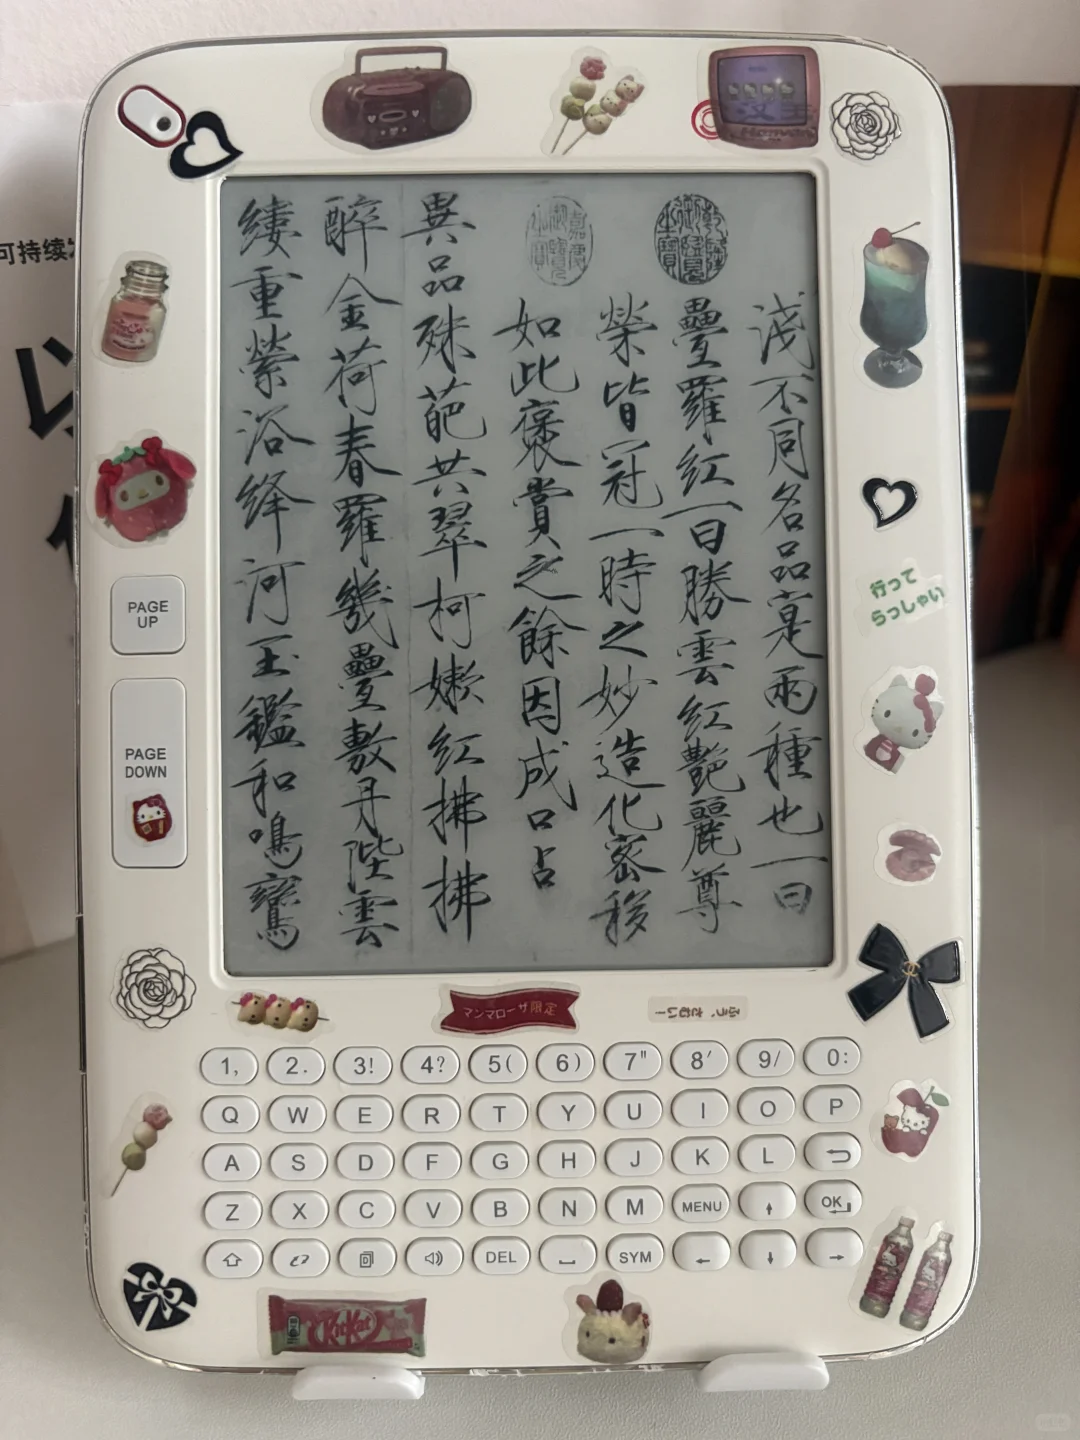 汉王
淺不同名品寔兩種也一曰
乾隆御覽之寶
疊羅紅一曰勝雲紅艷麗尊
榮皆冠一時之妙造化密移
嘉慶御覽之寶
如此褒賞之餘因成口占
異品殊葩共翠柯嫩紅拂拂
醉金荷春羅幾疊敷丹陛雲
縷重縈浴絳河玉鑑和鳴鸞
可持续
行って
らっしゃい
PAGE
UP
PAGE
DOWN
マンマローザ限定
1, 2. 3! 4? 5( 6) 7" 8' 9/ 0:
Q W E R T Y U I O P
A S D F G H J K L
Z X C V B N M MENU OK
DEL SYM
KitKat